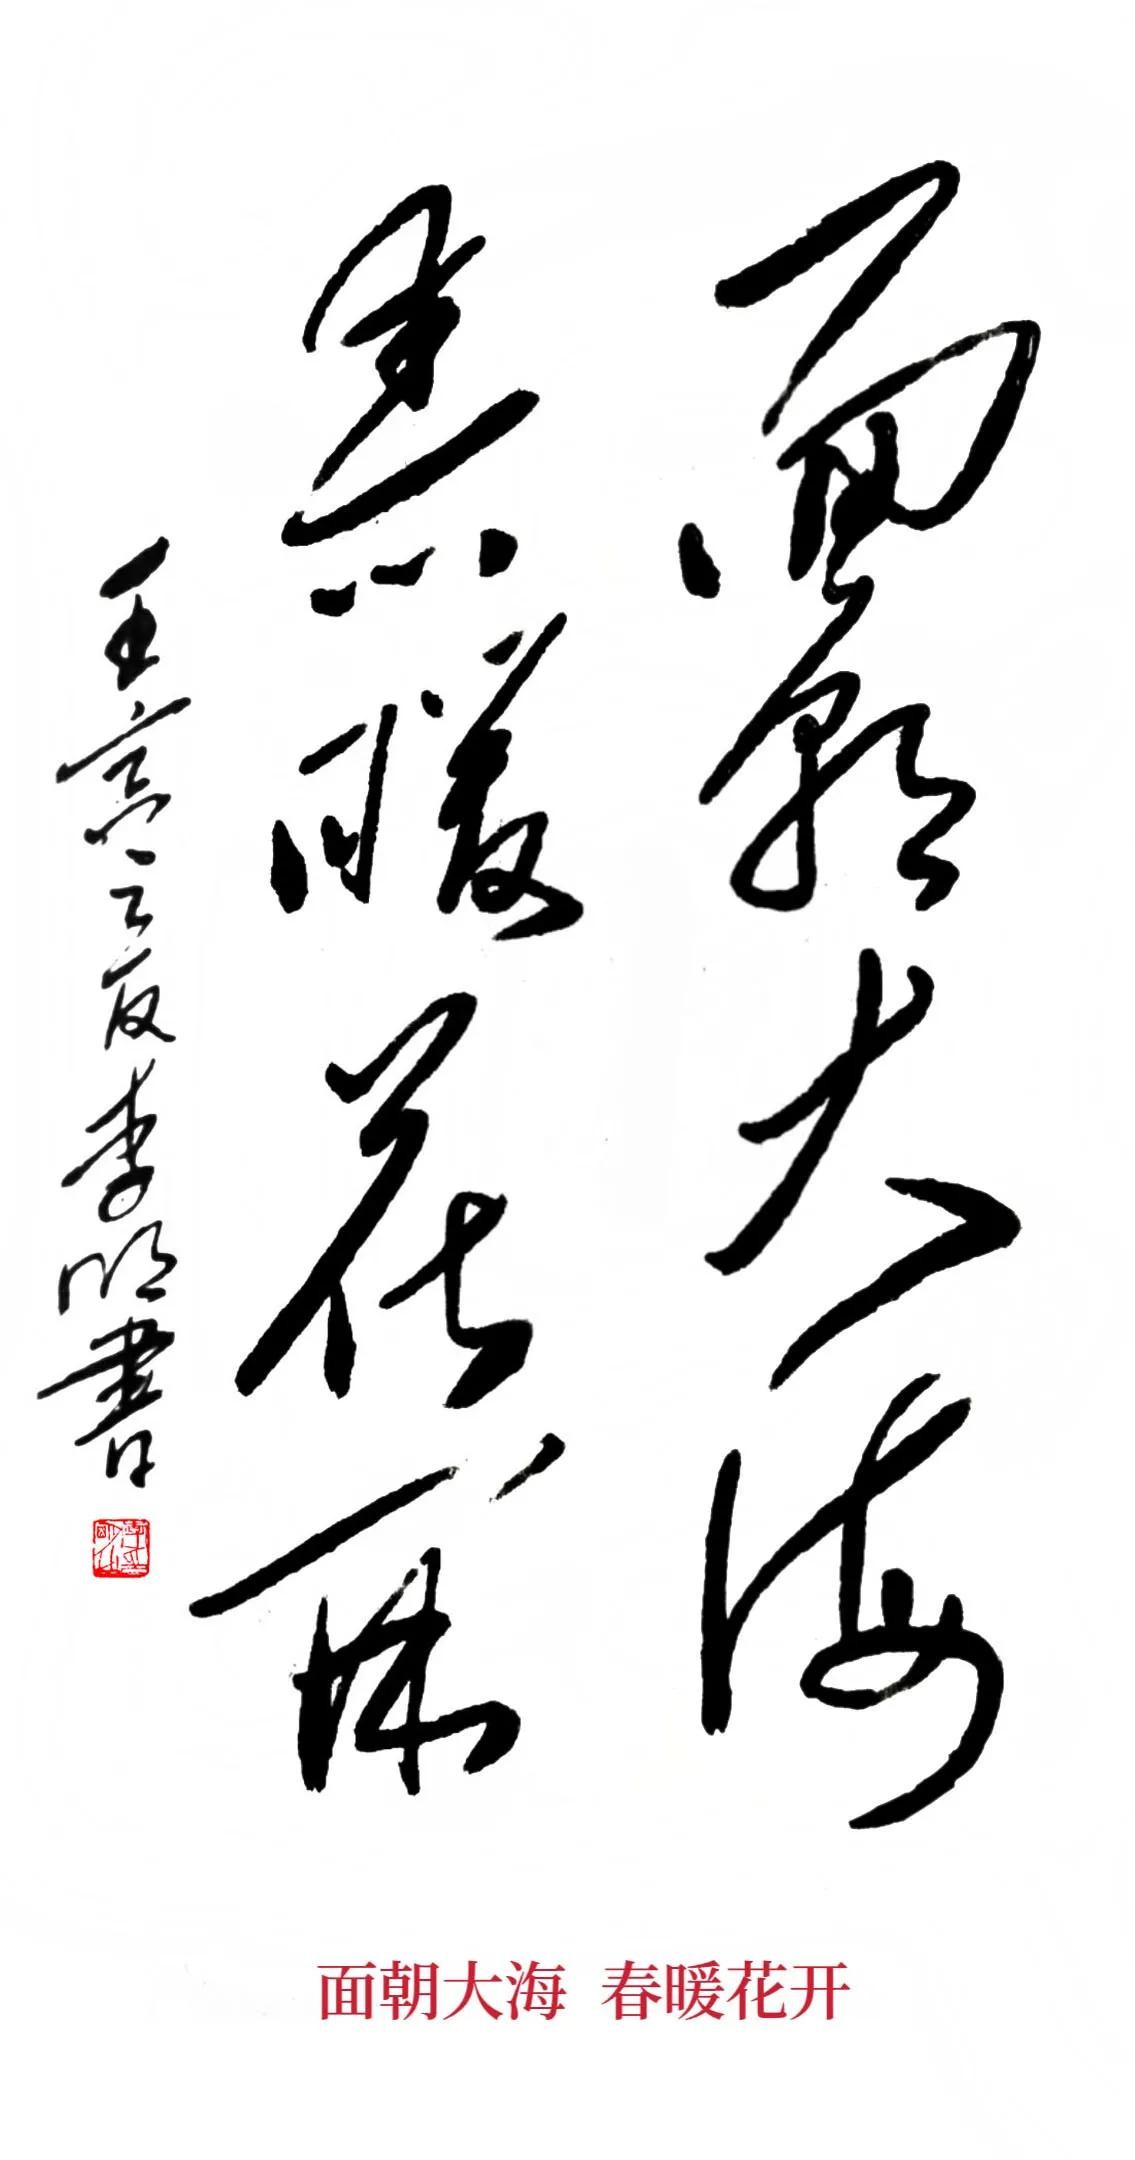 面朝大海
春暖花開
壬寅之夏李明書
面朝大海 春暖花开